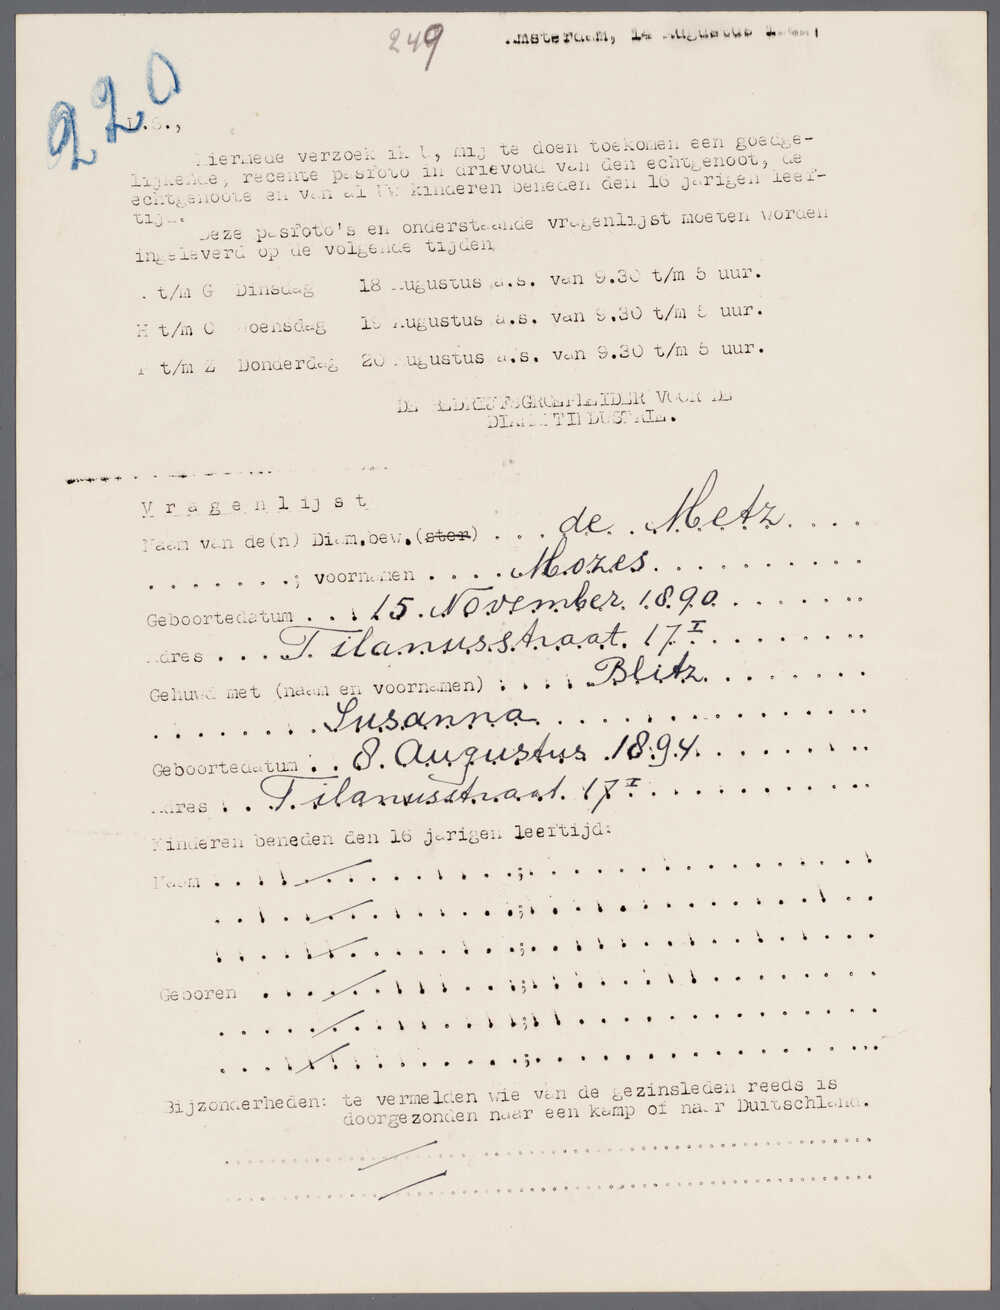 249
Amsterdam, 14 Augustus
220
L.S.,
Hiermede verzoek ik U, mij te doen toekomen een goedge-
lijkende, recente pasfoto in drievoud van den echtgenoot, de
echtgenoote en van al Uw kinderen beneden den 16 jarigen leef-
tijd.
Deze pasfoto's en onderstaande vragenlijst moeten worden
ingeleverd op de volgende tijden
A t/m G Dinsdag 18 Augustus a.s. van 9.30 t/m 5 uur.
H t/m O Woensdag 19 Augustus a.s. van 9.30 t/m 5 uur.
P t/m Z Donderdag 20 Augustus a.s. van 9.30 t/m 5 uur.
DE BEDRIJFSGROEPLEIDER VOOR DE
DIAMANTINDUSTRIE.
Vragenlijst
Naam van de(n) Diam.bew.(ster) . . . de . Metz . . . .
. . . . . . . ; voornamen . . . . Mozes . . . . . . . . . .
Geboortedatum . . . 15 November 1890 . . . . . . .
Adres . . . Tilanusstraat 17 I . . . . . . . .
Gehuwd met (naam en voornamen) : . . . Blitz . . . . . . . .
. . . . . . . . Susanna . . . . . . . . . . . . . . .
Geboortedatum : . 8 Augustus 1894 . . . . . . . .
Adres : . Tilanusstraat 17 I . . . . . . . . . .
Kinderen beneden den 16 jarigen leeftijd:
Naam . . . . . / . . . . . . . . ; . . . . . . . . . . . . . . .
. . . . . / . . . . . . . . ; . . . . . . . . . . . . . . .
. . . . . / . . . . . . . . ; . . . . . . . . . . . . . . .
Geboren . . . . / . . . . . . . ; . . . . . . . . . . . . . . .
. . . . . / . . . . . . . . ; . . . . . . . . . . . . . . .
. . . . . / . . . . . . . . ; . . . . . . . . . . . . . . .
Bijzonderheden: te vermelden wie van de gezinsleden reeds is
doorgezonden naar een kamp of naar Duitschland.
. . . . . . . . . . / . . . . . . . . . . . . . . . . . . . .
. . . . . . . . . . / . . . . . . . . . . . . . . . . . . . .